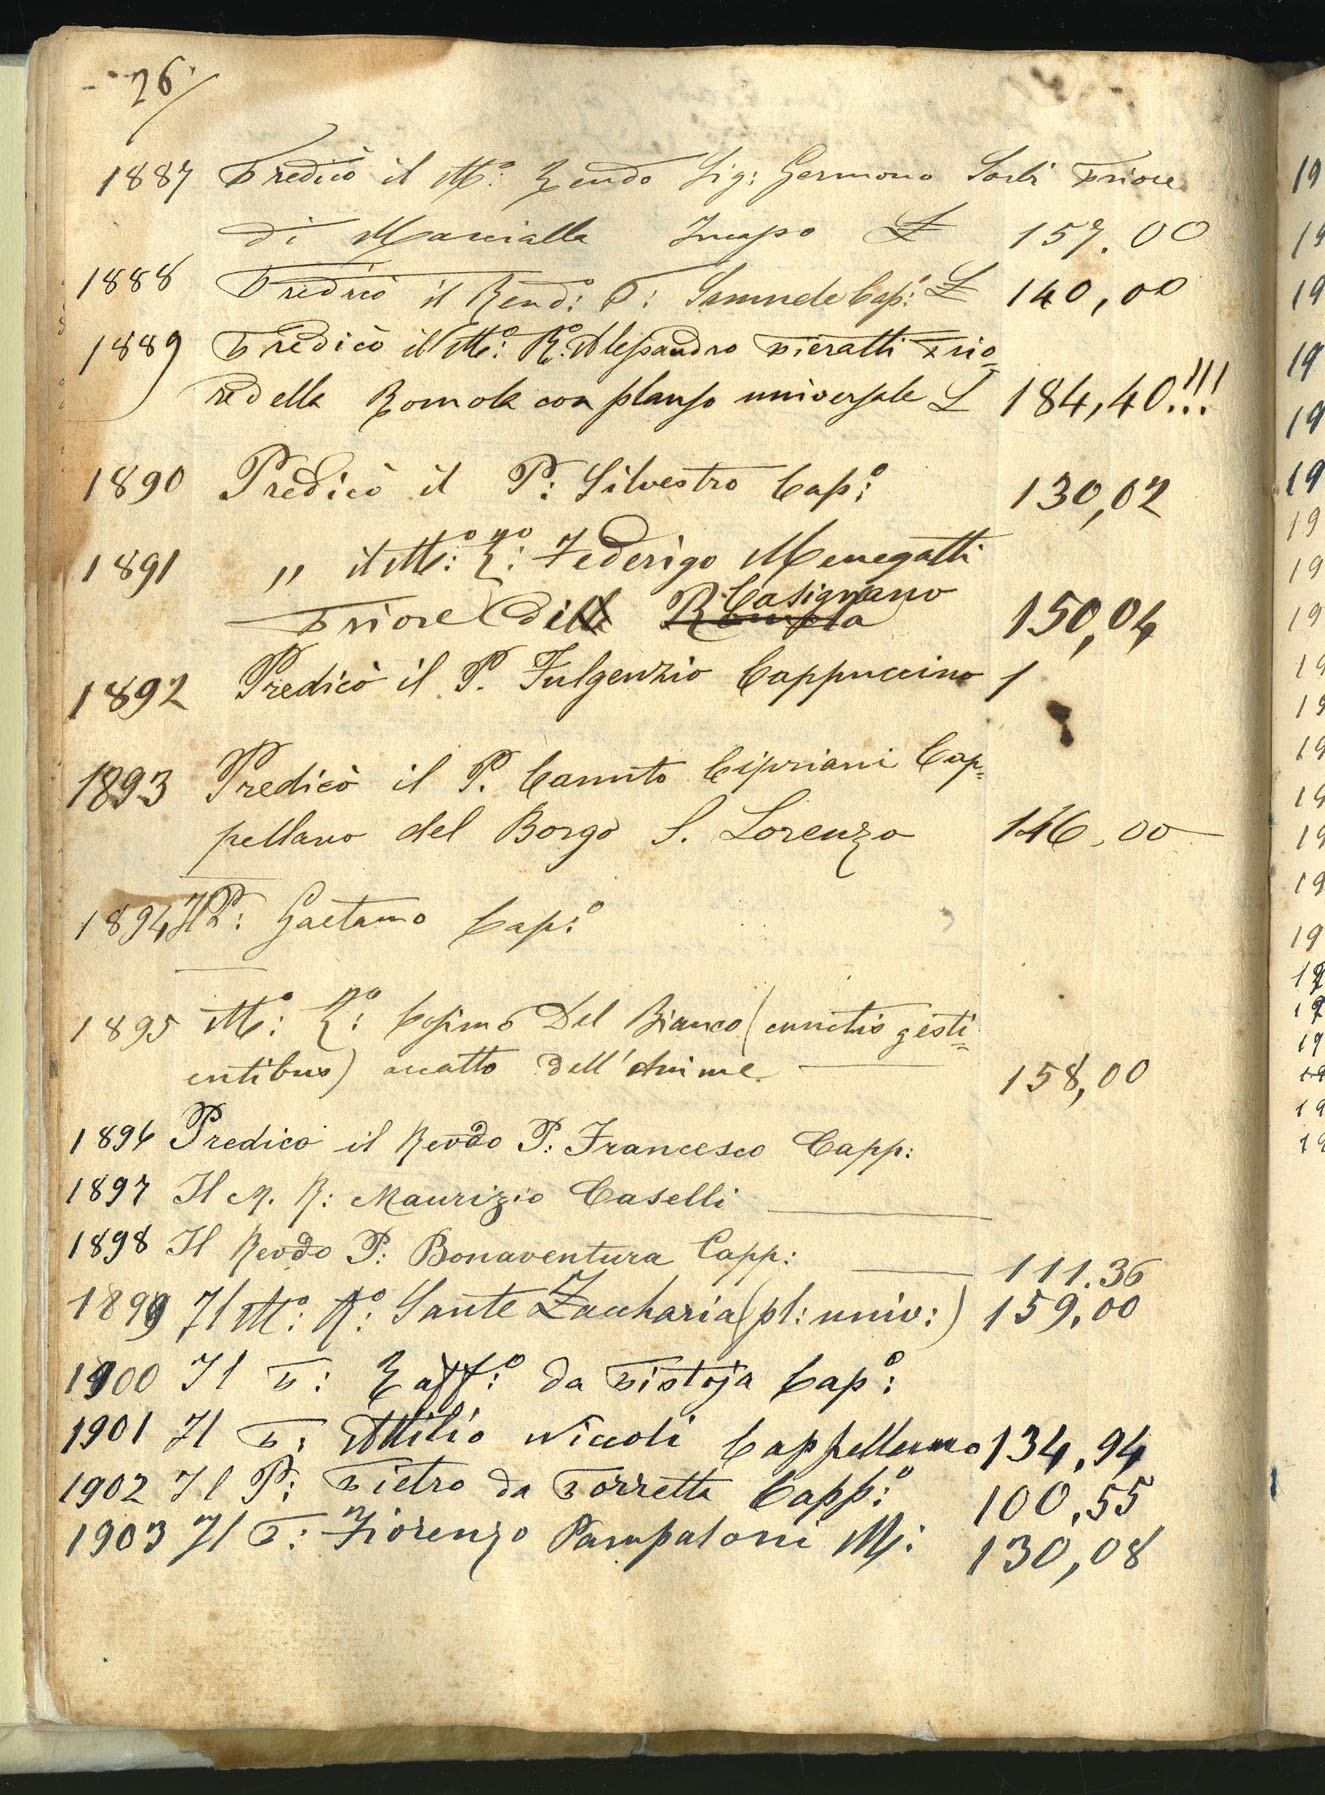 26.
1887 Predicò il M.o Rendo Sig: Germono Sorbi Priore
di Marcialla Incasso £ 157.00
1888 Predicò il Rend.o: P: Samuele Cap.o: £ 140,00
1889 Predicò il M.o: R.o: Alessandro Pieratti Prio=
re della Romola con plauso universale £ 184,40!!!
1890 Predicò il P: Silvestro Cap.o: 130,02
1891 „ il M.o: R.mo: Federigo Menegatti
Casignano
Priore della Romola 150,04
1892 Predicò il P. Fulgenzio Cappuccino 1
1893 Predicò il P. Canuto Cipriani Cap=
pellano del Borgo S. Lorenzo 146,00
1894 Il P: Gaetano Cap.o:
1895 M.o: R.do: Cosimo Del Bianco (cunctis gesti=
entibus) accatto dell'Anime. 158,00
1896 Predicò il Revdo P: Francesco Capp:
1897 Il M. R: Maurizio Caselli
1898 Il Revdo P: Bonaventura Capp: 111.36
1899 Il M.o: R.o: Sante Zaccharia (pl: univ:) 159,00
1900 Il P: Raff.o: da Pistoja Cap.o:
1901 Il P: Attilio Niccoli Cappellano 134,94
1902 Il P: Pietro da Porretta Capp.o: 100,55
1903 Il P: Fiorenzo Pampaloni M: 130,08
19
19
19
19
19
19
19
19
19
19
19
19
19
19
19
19
19
19
19
19
19
19